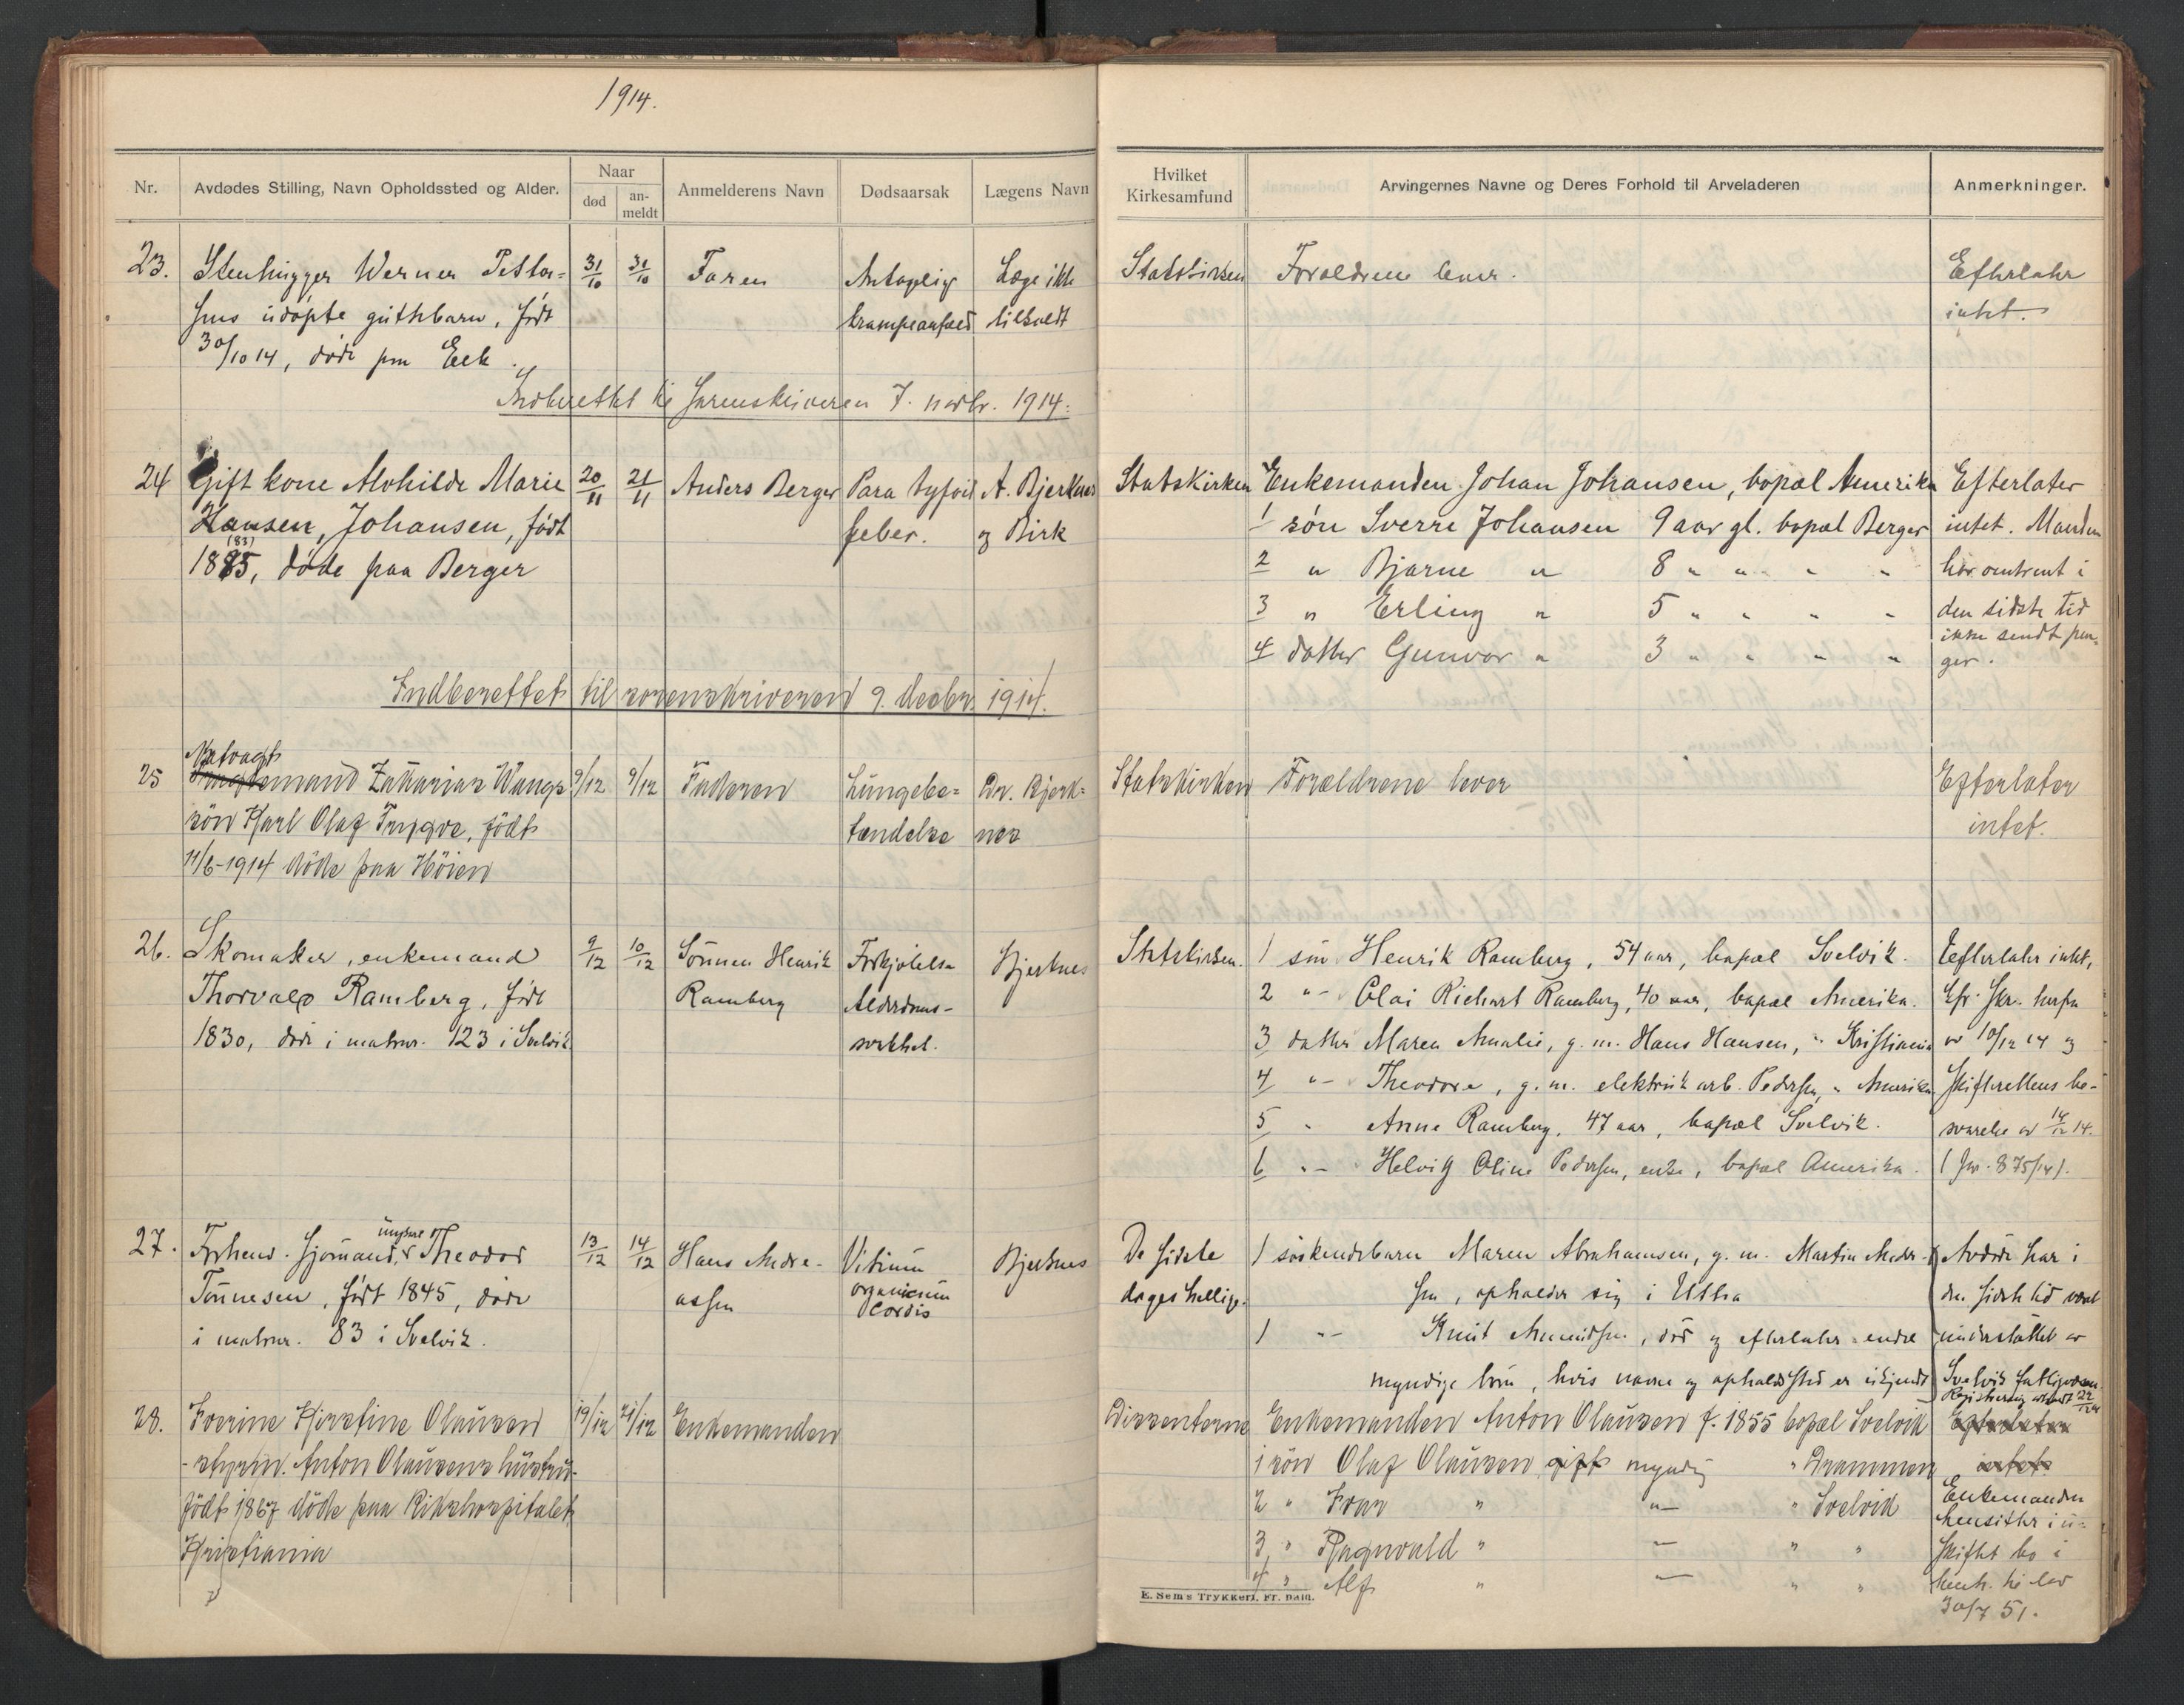 1914.
Nr.
Avdødes Stilling, Navn Opholdssted og Alder.
Naar
død
an-
meldt
Anmelderens Navn
Dødsaarsak
Lægens Navn
Hvilket
Kirkesamfund
Arvingernes Navne og Deres Forhold til Arveladeren
Anmerkninger.
23. Stenhugger Werner Petter= 31/10 31/10 Faren Antagelig Læge ikke Statskirken Forældrene lever. Efterlater
sens udøpte guttebarn, født krampeanfald tilkaldt intet.
30/10 14, døde paa Eek.
Indberettet til Sorenskriveren 7. novbr. 1914.
24 Gift kone Alvhilde Marie 20/11 21/11 Anders Berger Para tyfoid A. Bjerknes Statskirken Enkemanden Johan Johansen, bopæl Amerika Efterlater
Hansen, Johansen, født feber. og Birk 1 søn Sverre Johansen 9 aar gl. bopæl Berger intet. Manden
(83)
1885, døde paa Berger 2 " Bjarne " 8 " " " " har omtrent i
3 " Erling " 5 " " " " den sidste tid
ikke sendt pen-
4 datter Gunvor " 3 " " " " ger.
Indberettet til sorenskriveren 9. decbr. 1914.
Natvagt
25 Zakarias Wangs 9/12 9/12 Faderen Lungebe= Dr. Bjerk= Statskirken Forældrene lever Efterlater
søn Karl Olaf Trygve, født tændelse nes intet.
11/6-1914 døde paa Höien
26. Skomaker, enkemand 9/12 10/12 Sønnen Henrik Forkjølelse Bjerknes Statskirken. 1 søn Henrik Ramberg, 54 aar, bopæl Svelvik. Efterlater intet,
Thorvald Ramberg, født Ramberg Alderdoms- 2 "- Olai Richart Ramberg, 40 aar, bopæl Amerika. Cfr. Skr. herfra
1830, døde i matrnr. 123 i Svelvik svakhet. 3 datter Maren Amalie, g. m. Hans Hansen, " Kristiania av 10/12 14 og
4 "- Theodora, g. m. elektrisk arb. Pedersen, " Amerika Skifterettens be-
5 " Anne Ramberg, 47 aar, bopæl Svelvik. svarelse av 14/12 14.
6 "- Helvig Oline Pedersen, enke, bopæl Amerika. (Jnr. 875/14).
27. Forhenv. Sjømand, ungkarl Theodor 13/12 14/12 Hans Andre- Vitium Bjerknes De sidste 1 søskendebarn Maren Abrahamsen, g. m. Martin Avdøde har i
Tønnesen, født 1845, døde assen organicum dages hellige. sen, opholder sig i Utha den sidste tid været
Cordis
i matrnr. 83 i Svelvik. 1 "- Knut Amundsen, død og efterlater endel understøttet av
myndige børn, hvis navne og opholdssted er ukjendt Svelvik Fattigvæsen.
28. Iverine Kirstine Olausen 19/12 21/12 Enkemanden Dissenterne Enkemanden Anton Olausen f. 1855 bopæl Svelvik Efterlater
- styrm. Anton Olausens hustru- 1 søn Olaf Olausen gift myndig " Drammen intet
født 1867 døde paa Rikshospitalet 2 " Ivar " "- " Svelvik Enkemanden
hensitter i u-
Kristiania 3 " Ragnvald " "- " " skiftet bo i
4 " Alf " "- " " henh. til lov
30/7 51.
E. Sem's Trykkeri, Fr. hald.